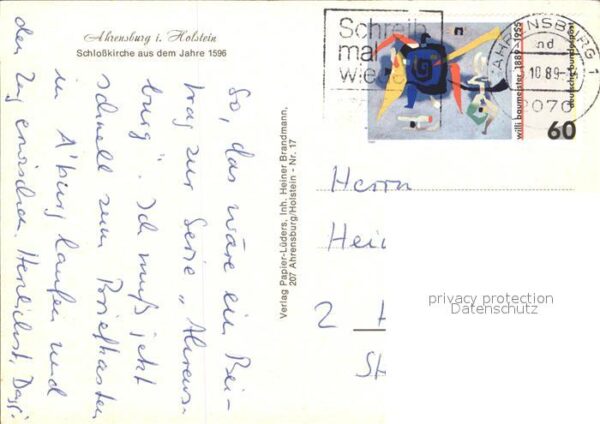 Ahrensburg i. Holstein
Schloßkirche aus dem Jahre 1596
So, das wäre ein Bei-
trag zur Serie „Ahrens-
burg". Ich muß jetzt
schnell zum Briefkasten
in A'burg laufen und
den Zug erwischen. Herzlichst, Dagi
Verlag Papier-Lüders, Inh. Heiner Brandmann,
207 Ahrensburg/Holstein - Nr. 17
Schreib
mal
wie
willi baumeister 1889-1955
deutsche bundespost
60
AHRENSBURG 1
nd
10.89
2070
Herrn
Hei
2
privacy protection
Datenschutz